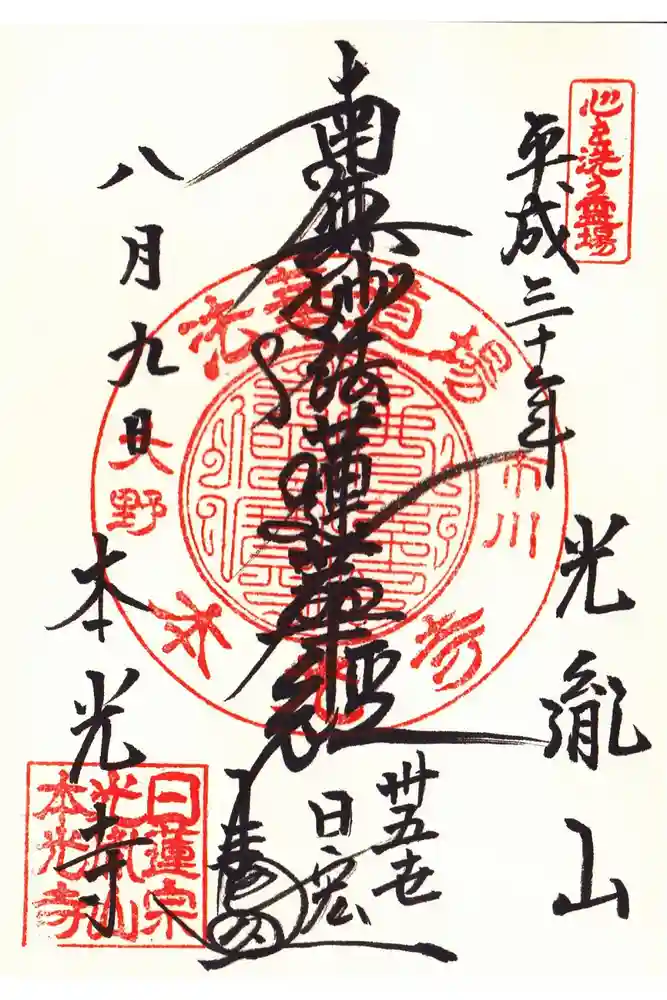 心を洗う霊場
平成三十年
光胤山
市川
南無妙法蓮華経
法華道場
卅五世
日宏
八月九日
大野
本光寺
日蓮宗
光胤山
本光寺